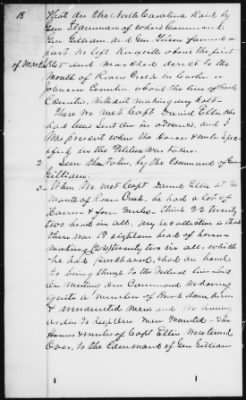 18 That on the North Carolina Raid by
Gen Stoneman of whose Command
Gen Gillam, and Gen Tilson formed a
part. We left Knoxville about the first
of March 65 and marched direct to the
Mouth of Roans Creek in Carter or
Johnson Counties about the line of said
Counties, without making any halt.
There We Met Capt Daniel Ellis who
had been sent on in advance, and I
Was present when the horses & mules speci-
fied in the Petition was taken.
2 Seen them taken, by the Command of Genl
Gillam.
3 When We Met Capt Daniel Ellis at the
Mouth of Roan Creek, he had a lot of
Horses & four Mules. Think 22 twenty
two head in all. My recollection is that
there was 18 eighteen head of horses
making (22) twenty two in all, which
he had purchased, and on hand
to bring through to the Federal lines but
on meeting our Command We having
quite a number of broke down horses
& unmounted men and We having
orders to keep our Men Mounted - the
Horses & mules of Capt Ellis Were turned
Over, to the Command of Gen Gillam